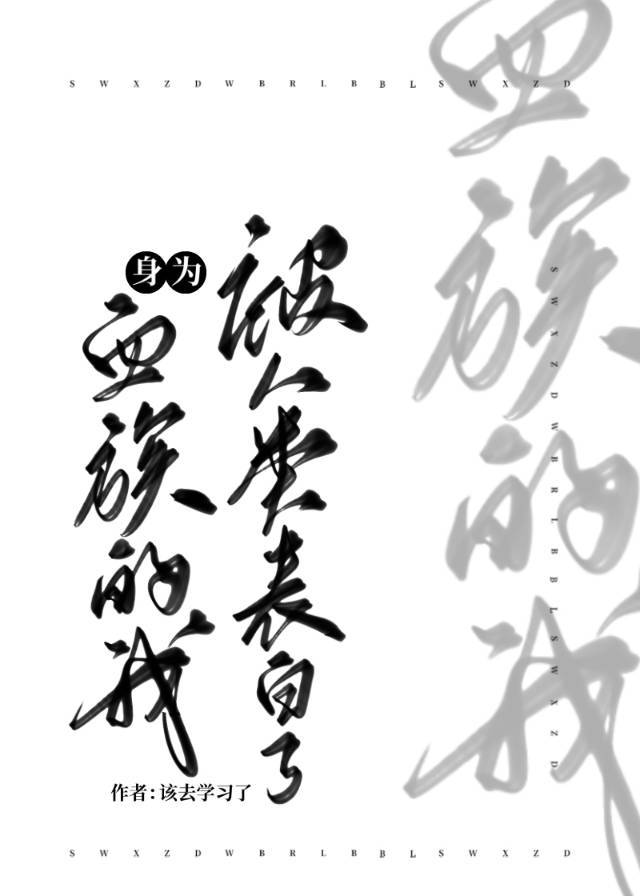 S W X Z D W B R L B B L S W X Z D
身为
血族的我
被人类表白了
作者：该去学习了
血族的我
S W X Z D W B R L B B L S W X Z D
S W X Z D W B R L B B L S W X Z D